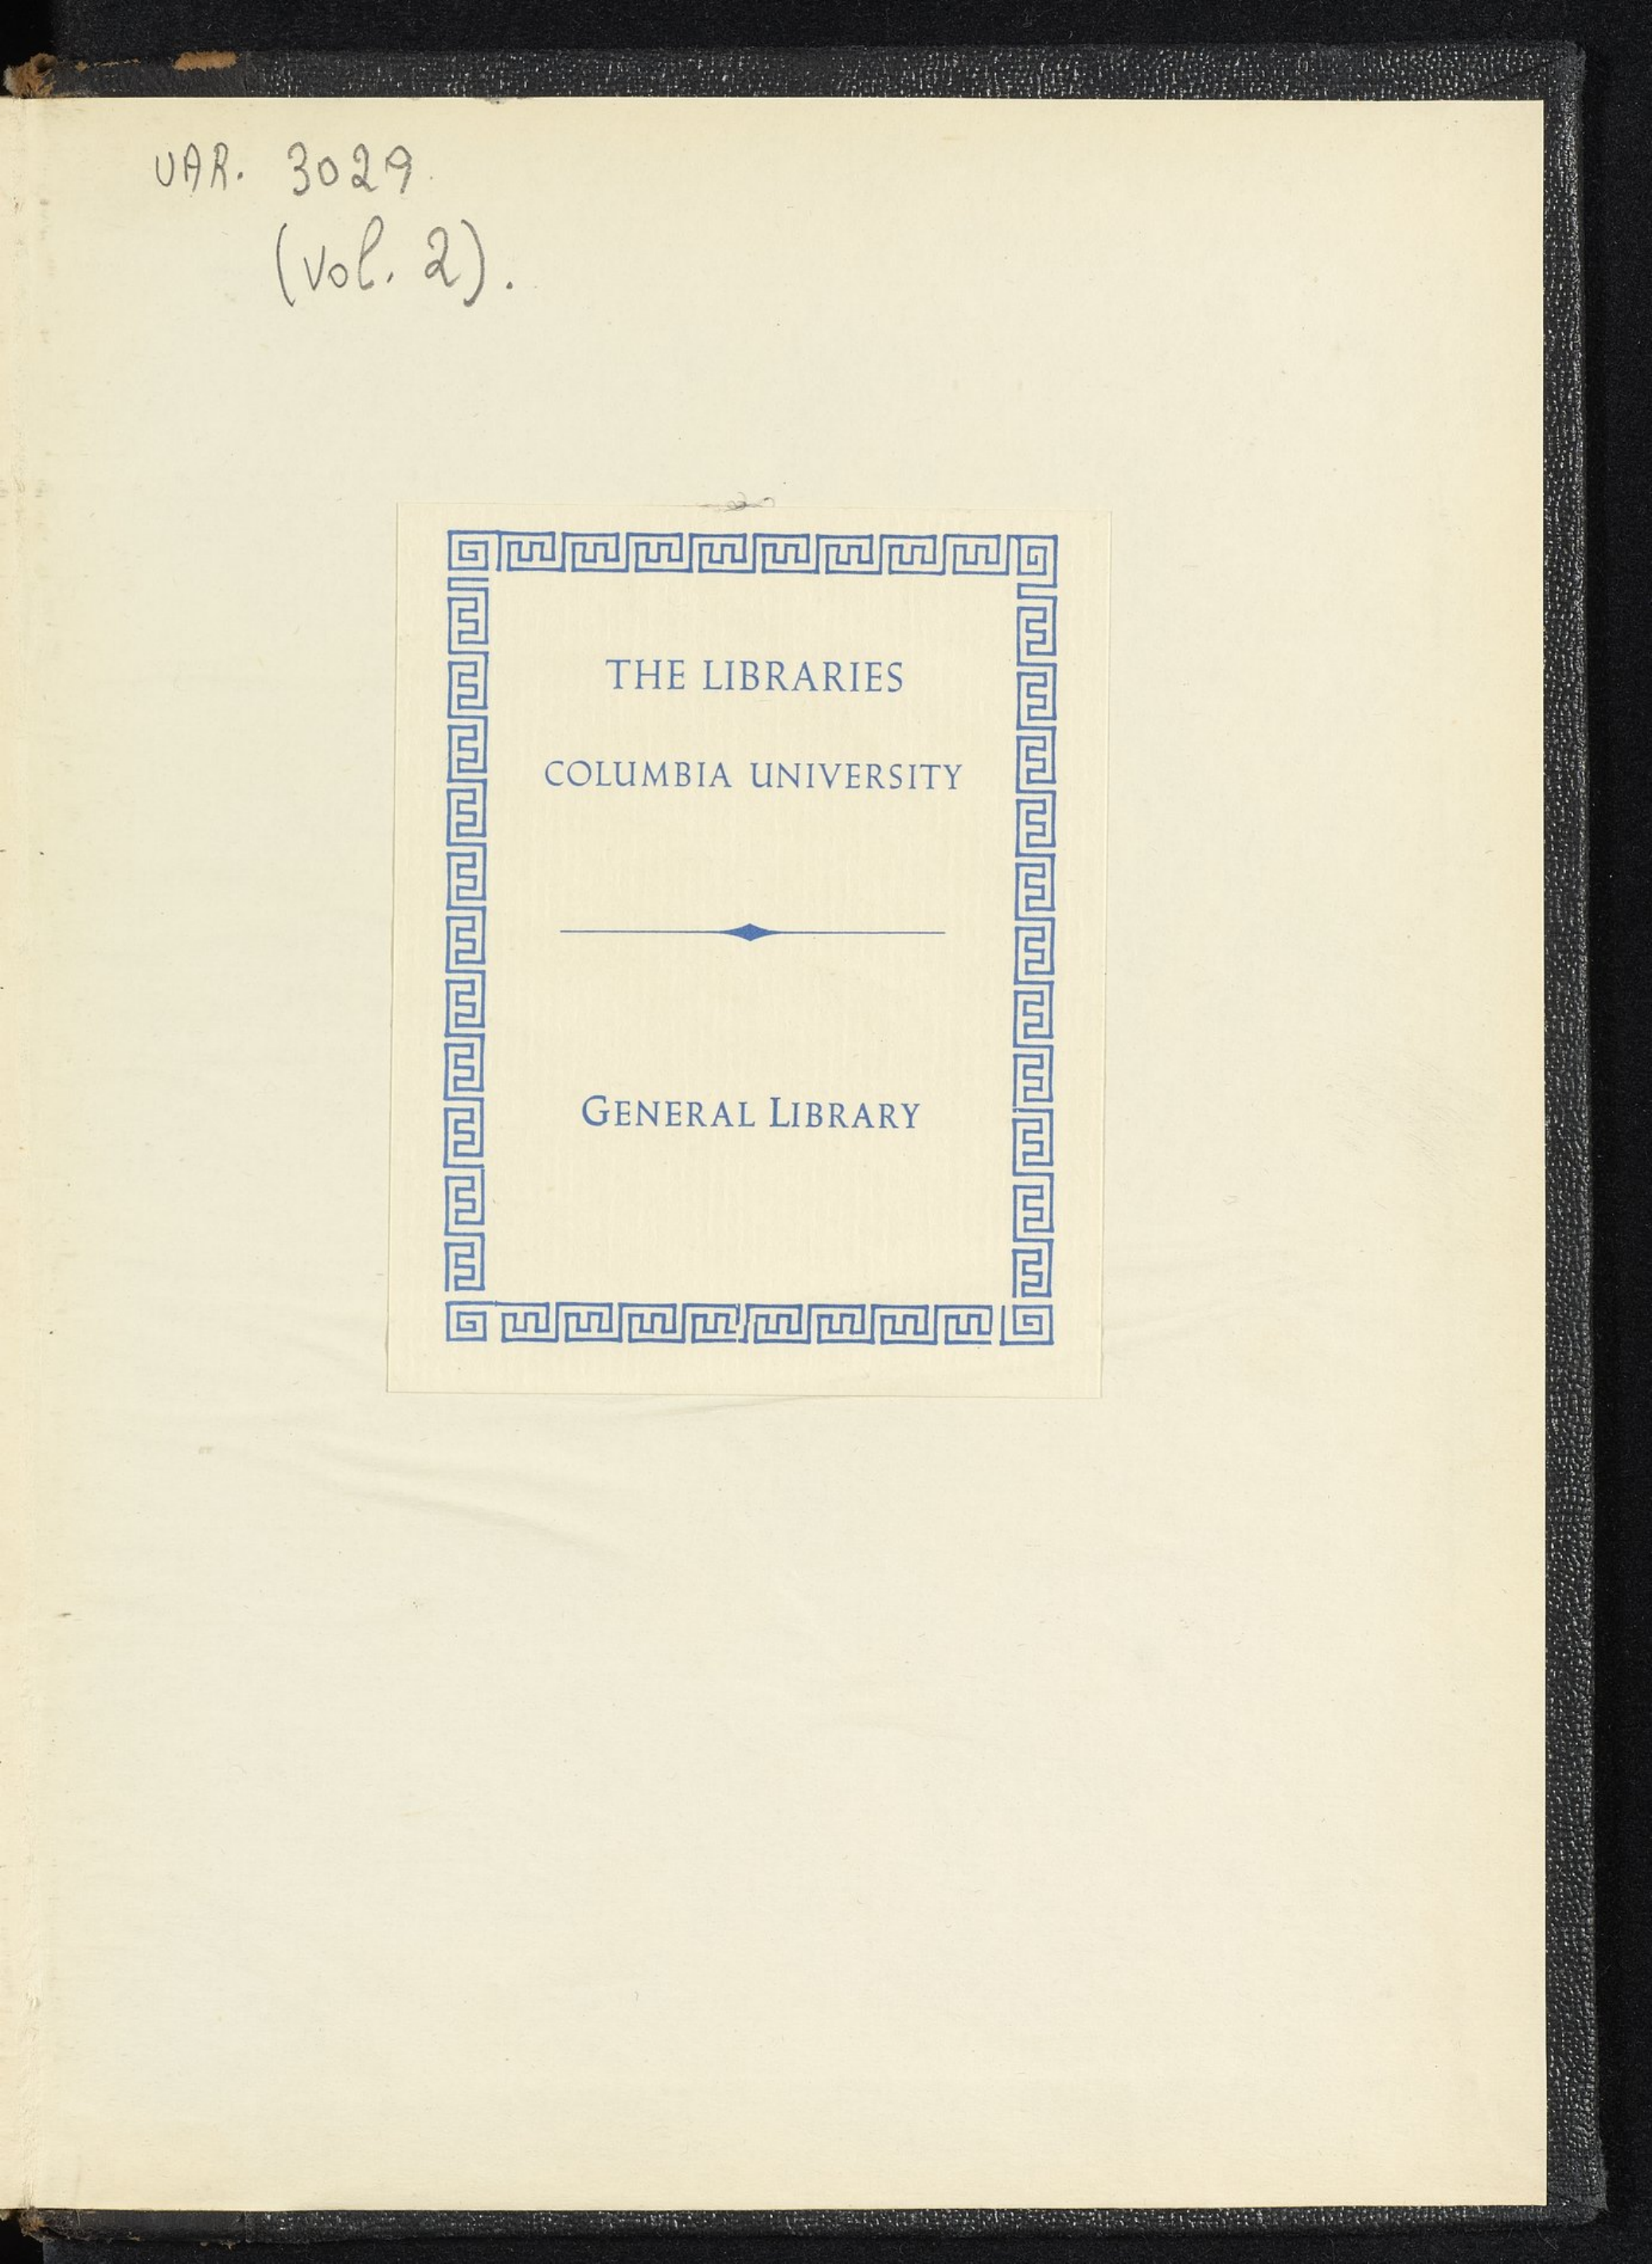 VAR. 3029.
(vol. 2).
THE LIBRARIES
COLUMBIA UNIVERSITY
GENERAL LIBRARY